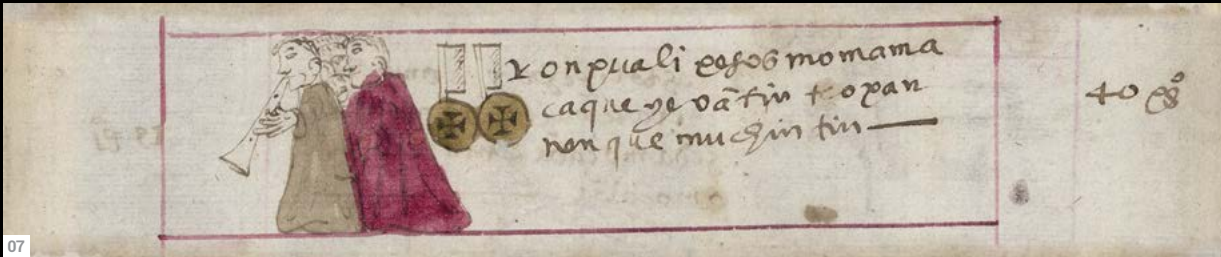 onpuali pesos momama
caque yevātin teopan
nenque muchintin
40 pºs
07